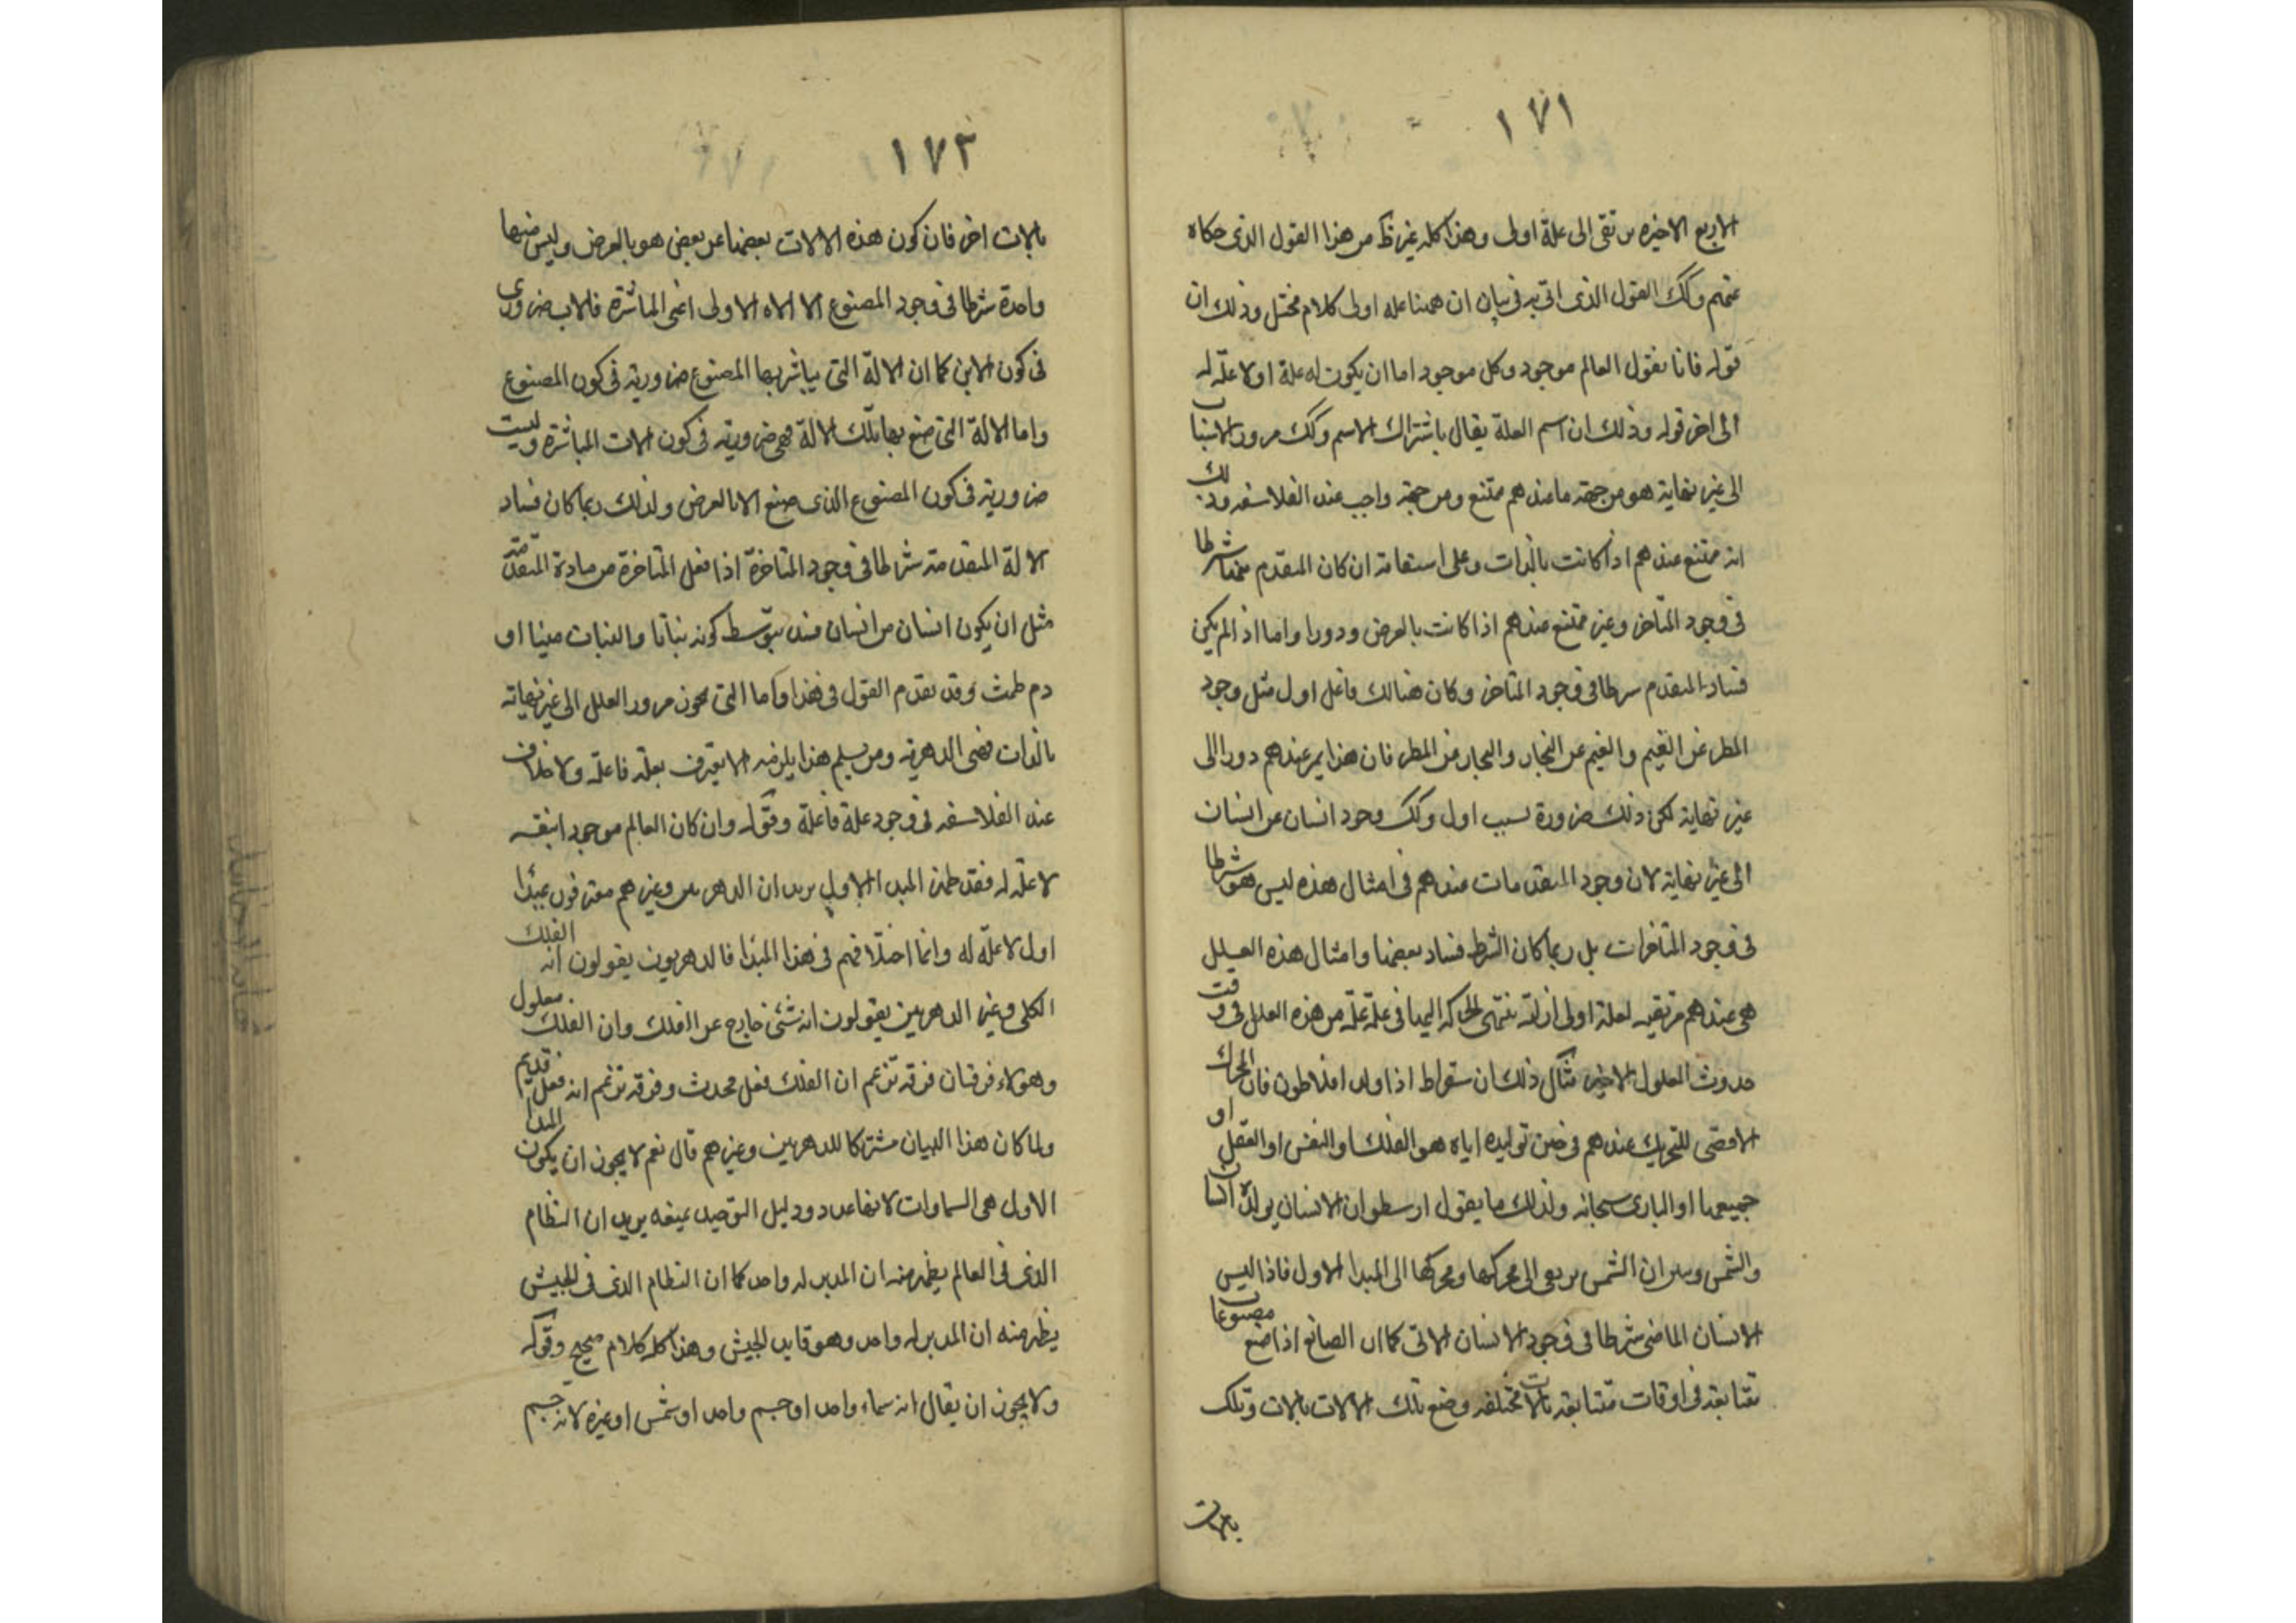 ١٧١
الاربع الاخيره ترتقى الى علة اولى وهذا كله غير ظ من هذا القول الذى حكاه
عنهم وكك القول الذى اتى به فى بيان ان ههنا عله اولى كلام مختل وذلك ان
قوله فانا نقول العالم موجود وكل موجود اما ان يكون له علة اولا علّة له
الى اخر قوله وذلك ان اسم العلة يقال باشتراك الاسم وكك مرور الاسباب
الى غير نهاية هو من جهته ما عندهم ممتنع ومن جهة واجب عند الفلاسفه وذلك
انه ممتنع عندهم اذا كانت بالذات وعلى استقامة ان كان المتقدم منها شرطا
فى وجود المتاخر وغير ممتنع عندهم اذا كانت بالعرض ودورا واما اذا لم يكن
فساد المتقدم شرطا فى وجود المتاخر وكان هنالك فاعل اول مثل وجود
المطر عن الغيم والغيم عن البخار والبخار عن المطر فان هذا يمر عندهم دورا الى
غير نهاية لكن ذلك ضرورة بسبب اول وكك وجود انسان عن انسان
الى غير نهاية لان وجود المتقدمات عندهم فى امثال هذه ليس هو شرطا
فى وجود المتاخرات بل ربما كان الشرط فساد بعضها وامثال هذه العلل
هى عندهم مرتقيه لعلة اولى ازلية تنتهى الحركه اليها فى علّة علّة من هذه العلل فى وقت
حدوث المعلول الاخير مثال ذلك ان سقراط اذا ولد افلاطون فان المحرك
الاقصى للتحريك عندهم فى حين توليده اياه هو الفلك او النفس او العقل او
جميعها او البارى سبحانه ولذلك ما يقول ارسطو ان الانسان يولده انسان
والشمس وبين ان الشمس ترتقى الى محركها ومحركها الى المبدا الاول فاذا ليس
الانسان الماضى شرطا فى وجود الانسان الاتى كما ان الصانع اذا صنع مصنوعات
تتابعه فى اوقات متتابعه بالات مختلفه وصنع تلك الالات بالات وتلك
بالات
١٧٢
بالات اخر فان كون هذه الالات بعضها عن بعض هو بالعرض وليس منها
واحدة شرطا فى وجود المصنوع الا الاله الاولى اعنى المباشرة فالاب ضرورى
فى كون الابن كما ان الالة التى يباشر بها المصنوع ضروريه فى كون المصنوع
واما الالة التى صنع بها تلك الالة فهى ضروريه فى كون الالات المباشرة وليست
ضروريه فى كون المصنوع الذى صنع الا بالعرض ولذلك ربما كان فساد
الالة المتقدمة شرطا فى وجود المتاخرة اذا فعل المتاخرة من مادة المتقدمة
مثل ان يكون انسان من انسان فسد بتوسط كونه نباتا والنبات منيا او
دم طمث وقد تقدم القول فى هذا واما التى تجوز مرور العلل الى غير نهاية
بالذات فهى الدهرية ومن يسلم هذا يلزمه الا يعترف بعلّة فاعلة ولا خلاف
عند الفلاسفه فى وجود علة فاعلة وقوله وان كان العالم موجود ابنفسه
لا علّة له فقد ظهر المبدا الاول يريد ان الدهريين وغيرهم معترفون بمبدا
اول لا علّة له وانما اختلافهم فى هذا المبدا فالدهريون يقولون انه الفلك
الكلى وغير الدهريين يقولون انه شئى خارج عن الفلك وان الفلك معلول
وهولاء فرقتان فرقه تزعم ان الفلك فعل محدث وفرقه تزعم انه فعل قديم
ولما كان هذا البيان مشتركا للدهريين وغيرهم قال نعم لا يجوز ان يكون المبدا
الاول هى السماوات لانها عدد ودليل التوحيد يمنعه يريد ان النظام
الذى فى العالم يظهر منه ان المدبر له واحد كما ان النظام الذى فى الجيش
يظهر منه ان المدبر له واحد وهو قايد الجيش وهذا كله كلام صحيح وقوله
ولا يجوز ان يقال انه سماء واحد او جسم واحد او شمس او غيره لانه جسم